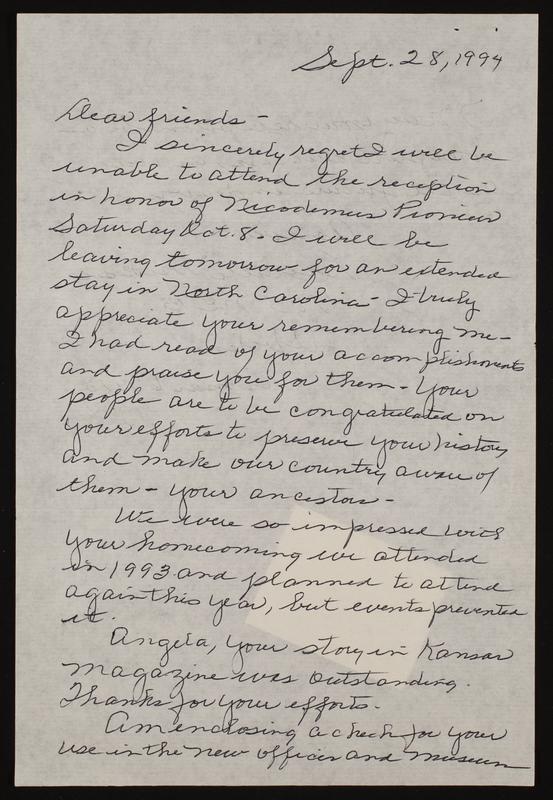 Sept. 28, 1994
Dear friends -
I sincerely regret I will be
unable to attend the reception
in honor of Nicodemus Pioneer
Saturday Oct. 8 - I will be
leaving tomorrow for an extended
stay in North Carolina - I truly
appreciate your remembering me -
I had read of your accomplishments
and praise you for them - Your
people are to be congratulated on
your efforts to preserve your history
and make our country aware of
them - your ancestors -
We were so impressed with
your homecoming we attended
in 1993 and planned to attend
again this year, but events prevented
it.
Angela, your story in Kansas
magazine was outstanding.
Thanks for your efforts.
Am enclosing a check for your
use in the new offices and museum